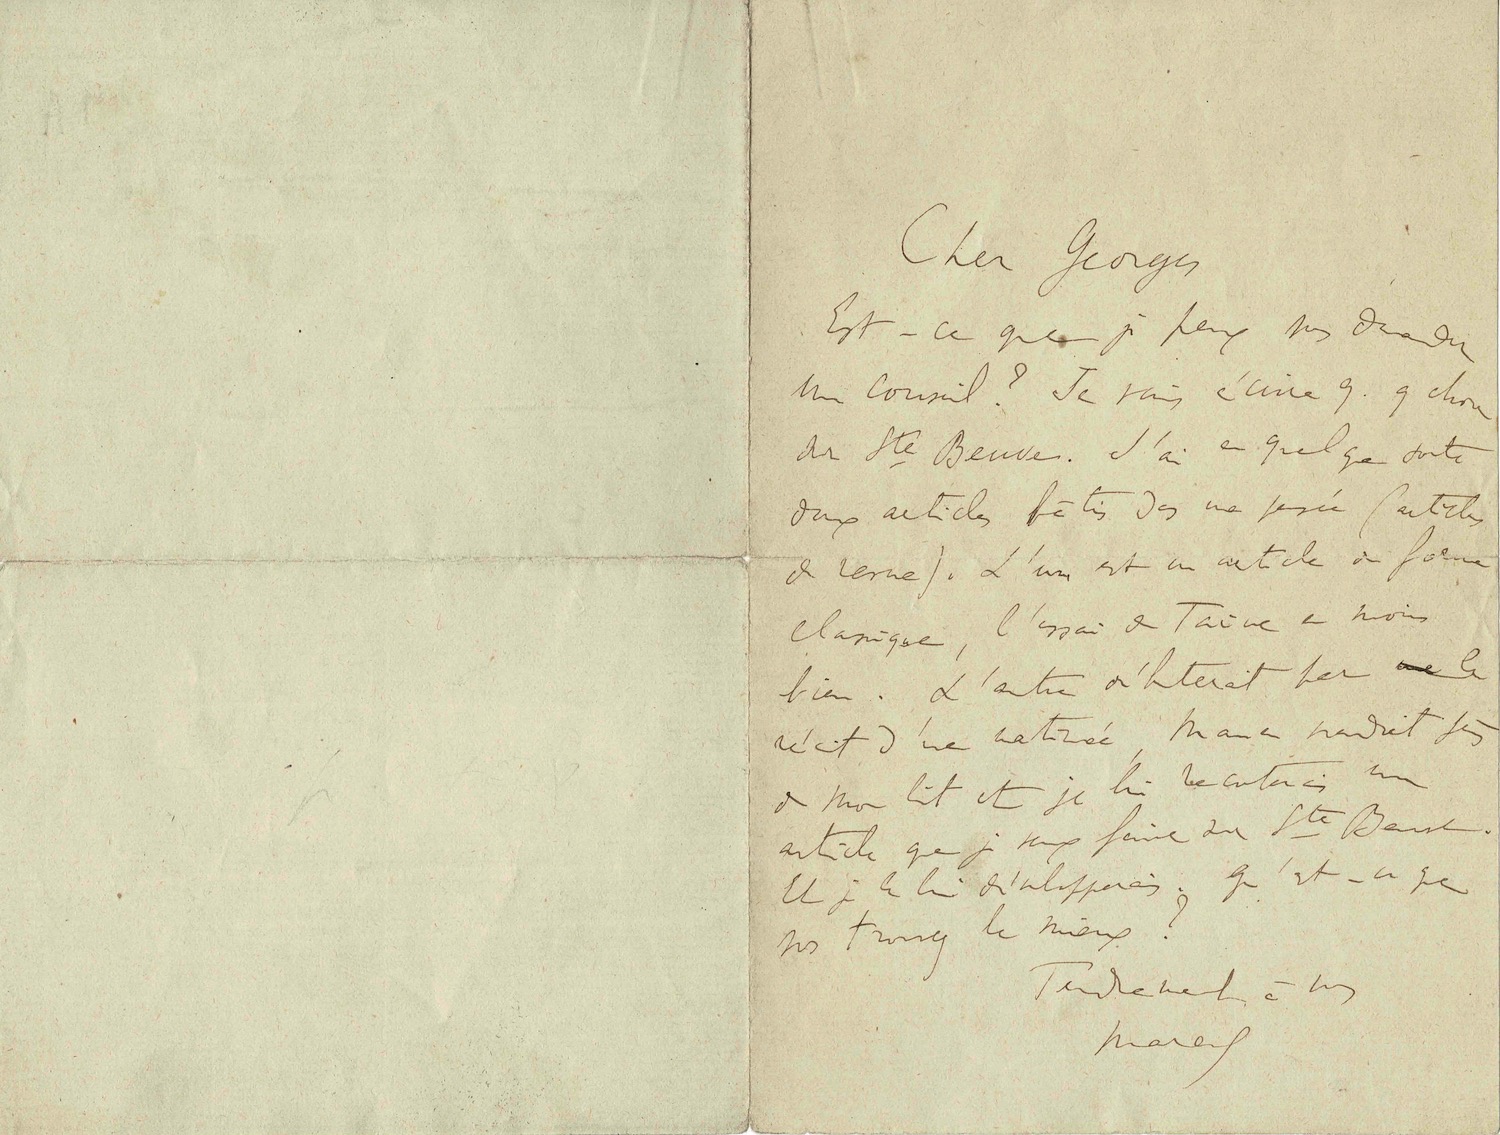 Cher Georges
Est-ce que je peux vous demander
un conseil ? Je vais écrire q. q chose
sur Ste Beuve. J'ai en quelque sorte
deux articles bâtis dans ma pensée (articles
de revue). L'un est un article de forme
classique, l'essai de Taine en moins
bien. L'autre débuterait par le
récit d'une matinée, Maman viendrait près
de mon lit et je lui raconterais un
article que je veux faire sur Ste Beuve.
Et je le lui développerais. Qu'est-ce que
vous trouvez le mieux ?
Tendrement à vous
Marcel